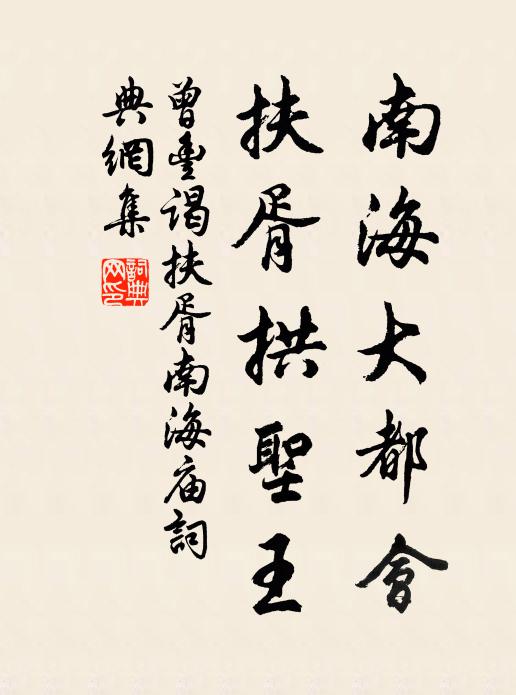 南海大都會
扶胥拱聖王
曾豐謁扶胥南海庙詞
典網集
詞典
网印